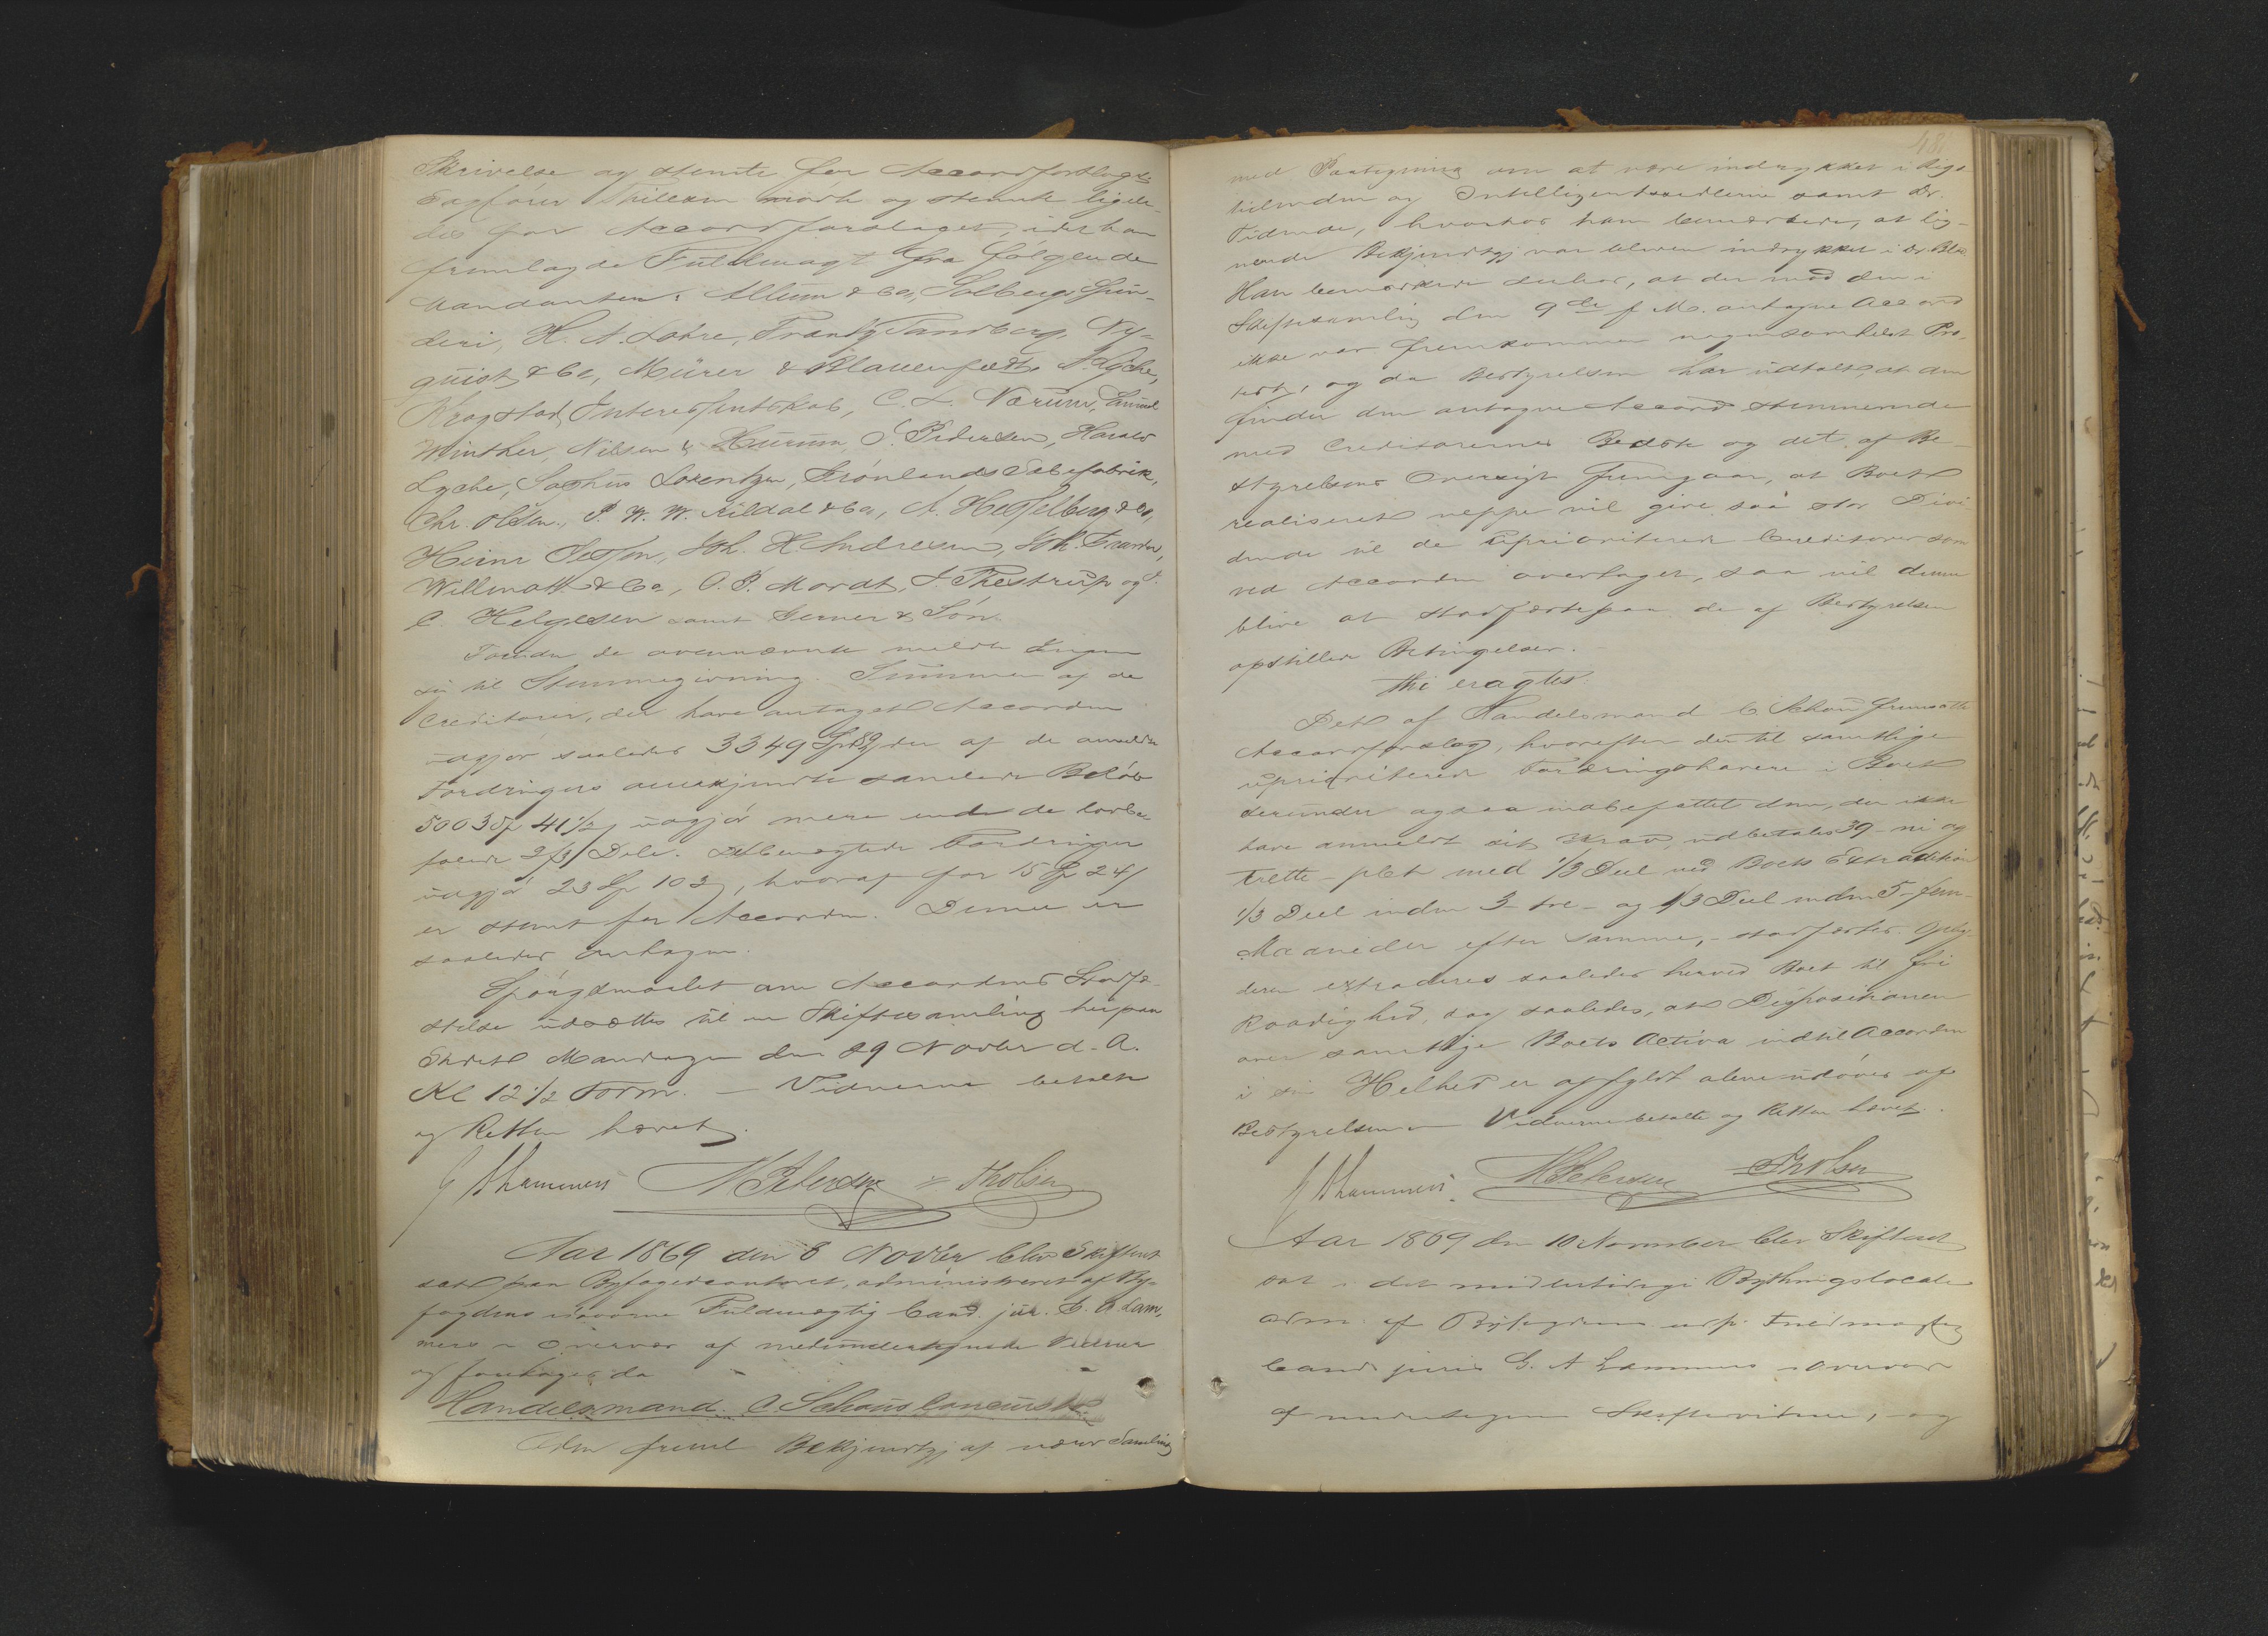 Skrivelse og stemte for Accordforslaget.
Sagfører mødte og stemte ligele-
des for Accordforslaget, idet han
fremlagde Fuldmagt fra følgende
Mandanter: Allum & Co, Solberg Spin-
deri, H. A. Løhre, Frantz Sandberg, Ny-
quist & Co, Mürer & Blauenfeldt, A. Lyche,
Krogstad Interessentskab, C. L. Nærum, Emil
Winther, Nilsen & Hurum, O. Pedersen, Harald
Lyche, Sophus Lorentzen, Grønlands Sæbefabrik,
Chr. Olsen, P. W. W. Kildal & Co, A. Hesselberg & Co,
Heinr Jessen, Joh. H. Andresen, Joh.
Willmott & Co, O. P. Mordt, J. Thestrup og
C. Helgesen samt Jerner & Søn
Foruden de ovennævnte meldte Ingen
sig til Stemmegivning. Summen af de
Creditorer, der have antaget Accorden
udgjør saaledes 3349 Spd 89 der af de anmeldte
Fordringers anerkjendte samlede Beløb
5003 Sp 41 1/2 udgjør mere end de lovbe-
falede 2/3 Dele. Ubenægtede Fordringer
udgjør 23 Sp 103, hvoraf for 15 Sp 24
er stemt for Accorden. Denne er
saaledes antagen.
Spørgsmaalet om Accordens Stadfæ-
stelse udsættes til en Skiftesamling heipaa
Stedet Mandagen den 29 Novbr d. A.
Kl 12 1/2 Form. – Vidnerne betalte
og Retten hævet.
G A Lammers N Petersen Tholsen
Aar 1869 den 8 Novbr blev Skifteret
sat paa Byfogedcontoret, administreret af By-
fogdens edsvorne Fuldmægtig Cand. jur. G. A. Lam-
mers i Overvær af medundertegnede Vidner
og foretoges da
Handelsmand C. Schous Concursbo
Adm freml Bekjendtgj af nærv Samling
481
med Paategning om at være indrykket i Rigs
tidenden og Intelligentssedlerne samt Dr.
Tidende, hvorhos han bemærkede, at lig-
nende Bekjendtgj var bleven indrykket i Dr. Blad.
Han bemærkede derhos, at der mod den i
Skiftesamling den 9de f. M. antagne Accord
ikke var fremkommen nogensomhelst Pro-
test, og da Bestyrelsen har udtalt, at den
finder den antagne Accord stemmende
med Creditorernes Bedste og det af Be-
styrelsens Oversigt fremgaar, at Boet
realiseret neppe vil give saa stor Divi-
dende til de uprioriterede Creditorer som
ved Accorden overtages, saa vil denne
blive at stadfæste paa de af Bestyrelsen
opstillede Betingelser.
Thi eragtes:
Det af Handelsmand C Schou fremsatte
Accordforslag, hvorefter der til samtlige
uprioriterede Fordringshavere i Boet
derunder ogsaa indbefattet dem, der ikke
have anmeldt sit Krav, udbetales 39 – ni og
trette – pCt. med 1/3 Deel ved Boets Extradition
1/3 Deel inden 3 – tre – og 1/3 Deel inden 5 – fem –
Maaneder efter samme, – stadfæstes.
deren extraderes saaledes herved Boet til fri
Raadighed, dog saaledes, at Dispositionen
over samtlige Boets Activa indtil Accorden
i sin Helhed er opfyldt alene udøves af
Bestyrelsen. – Vidnerne betalte og Retten hævet.
G A Lammers. N Petersen Tholsen
Aar 1869 den 10 November blev Skifteret
sat i det midlertidige Bythingslocale
adm. af Byfogdens edsv. Fuldmægtig
Cand juris G. A Lammers i Overvær
af undertegnede Skiftevidner, – og